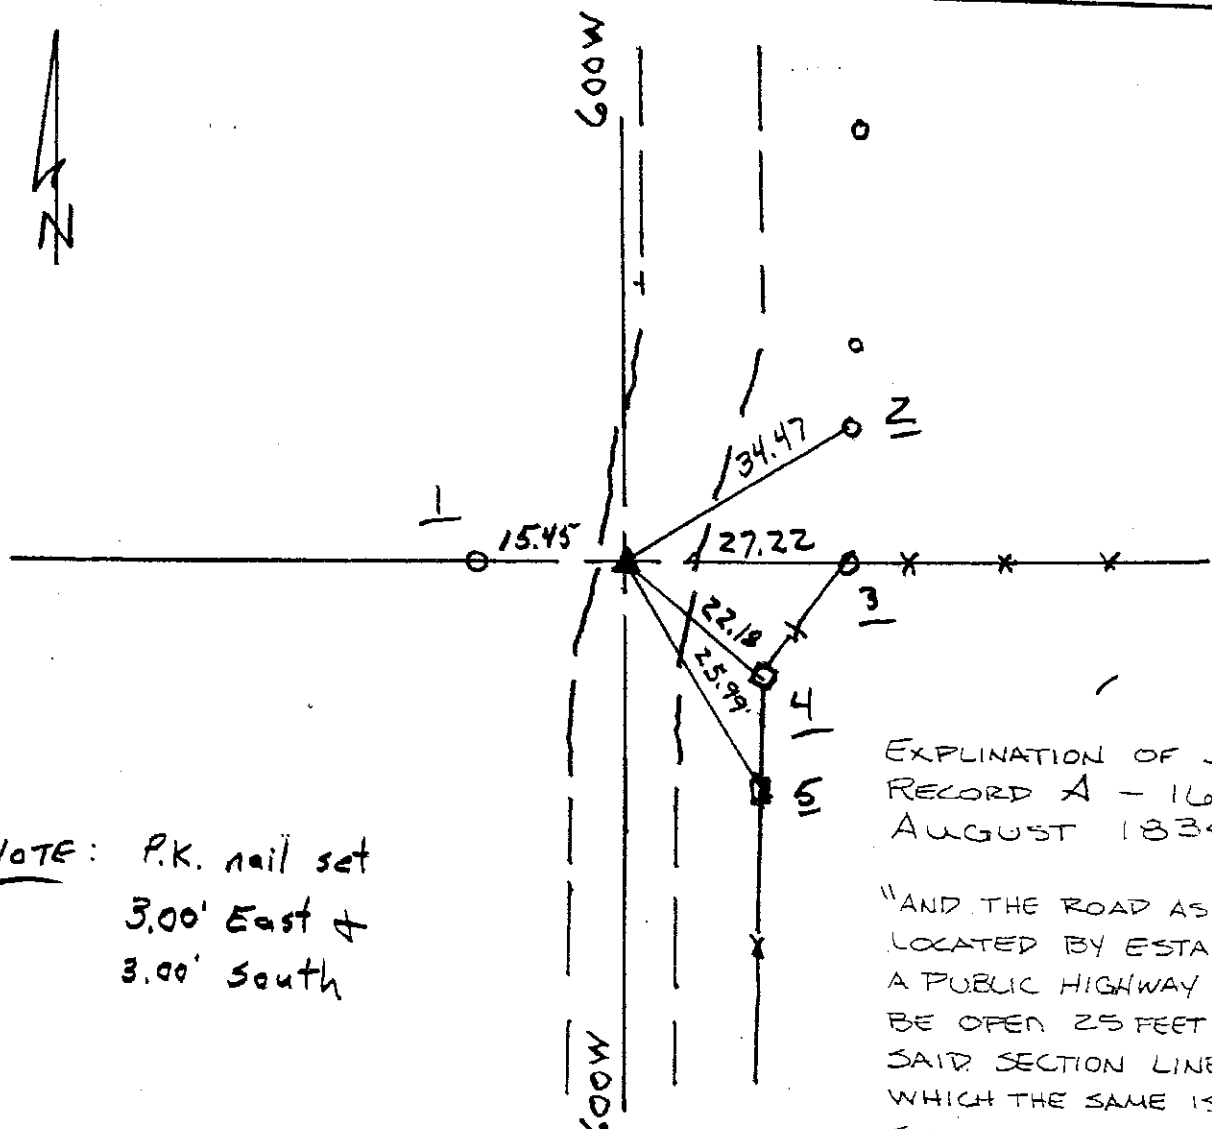 600W
N
2
34.47
1
15.45
27.22
3
22.18
25.99'
4
5
NOTE: P.K. nail set
3.00' East &
3.00' South
EXPLINATION OF
RECORD A - 16
AUGUST 183
"AND THE ROAD AS
LOCATED BY ESTA
A PUBLIC HIGHWAY
BE OPEN 25 FEET
SAID SECTION LINE
WHICH THE SAME IS
600W